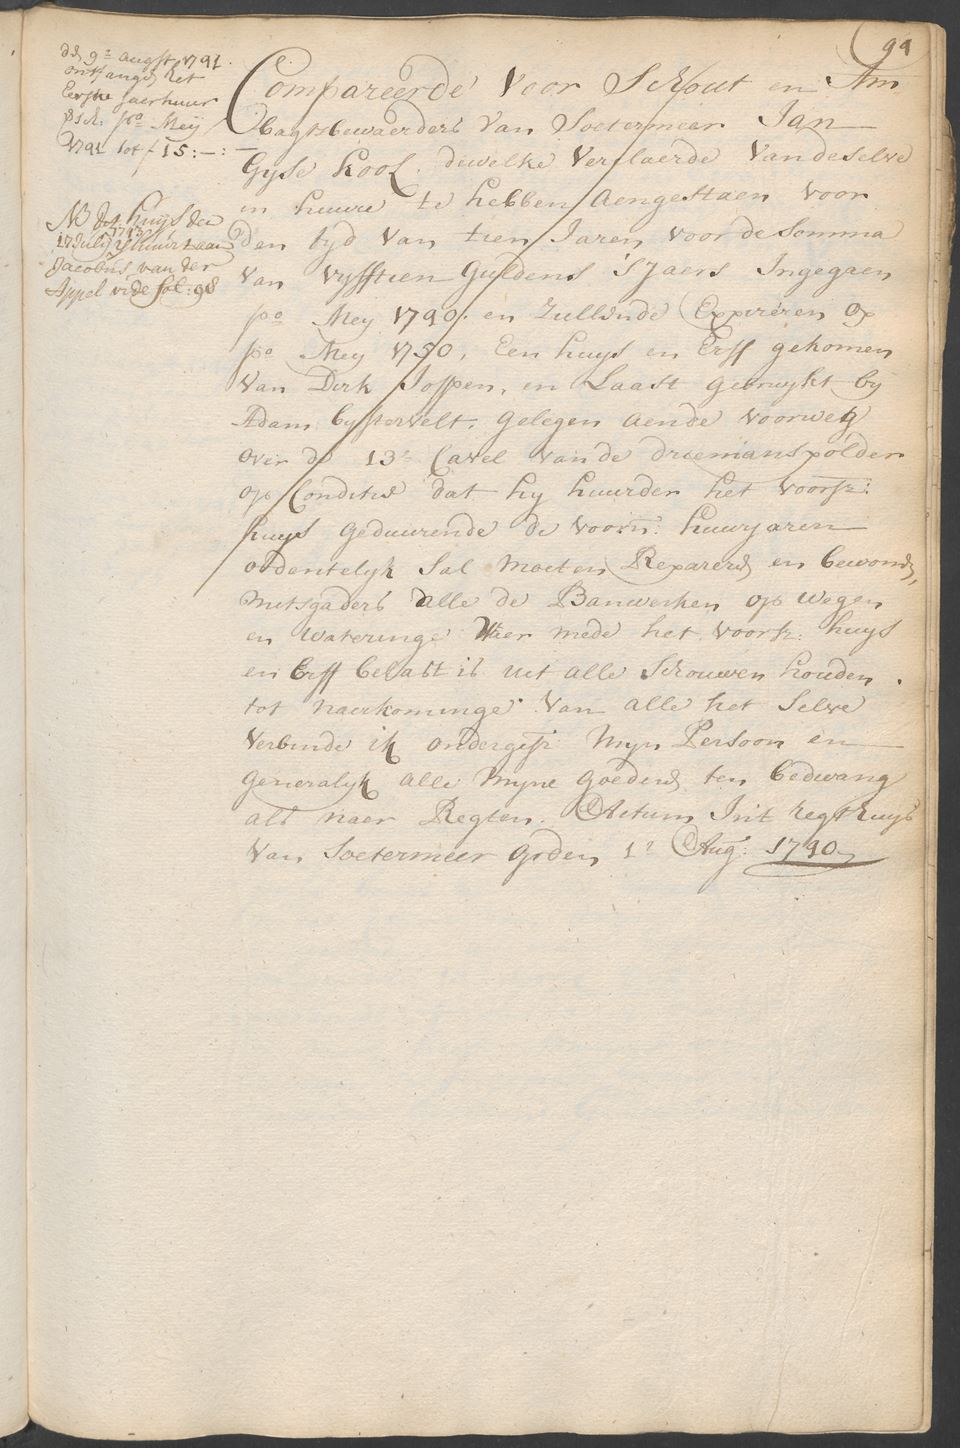 94
dn 9e augst 1741.
ontfangen het
Eerste jaerhuur
psch. pmo Meij
1741 tot f 15:—:—
NB dit huijs den
17 Julij 1743 verhuurt aan
Jacobus van der
Appel vide fol: 98
Compareerde Voor Schout en Am
bagtsbewaerders Van Soetermeer Jan
Gijse Kool. dewelke Verklaerde Van deselve
in huure te hebben aengestaen voor
den tyd van tien Jaren voor de Somma
van vyfftien Guldens 'sJaers Ingegaen
pmo Mey 1740. en Zullende Expireren op
pmo Mey 1750, Een huys en Erff gekomen
Van Dirk Joppen, en Laast gebruykt by
Adam bystervelt, gelegen aende Voorweg
over de 13e Cavel vande driemanspolder
op Conditie dat hy huurder het voorsz:
huys geduurende de voorn: huurjaren
ordentelyk sal moeten Repareren en bewonen,
mitsgaders alle de Banwerken op wegen
en wateringe Waer mede het voorsz: huys
en Erff belast is uit alle schouwen houden.
tot naerkominge Van alle het selve
Verbinde ik ondergesz: Myn Persoon en
generalyk alle myne goederen ten bedwang
als naer Regten. Actum Int Regthuys
Van Soetermeer op den 1e Aug: 1740